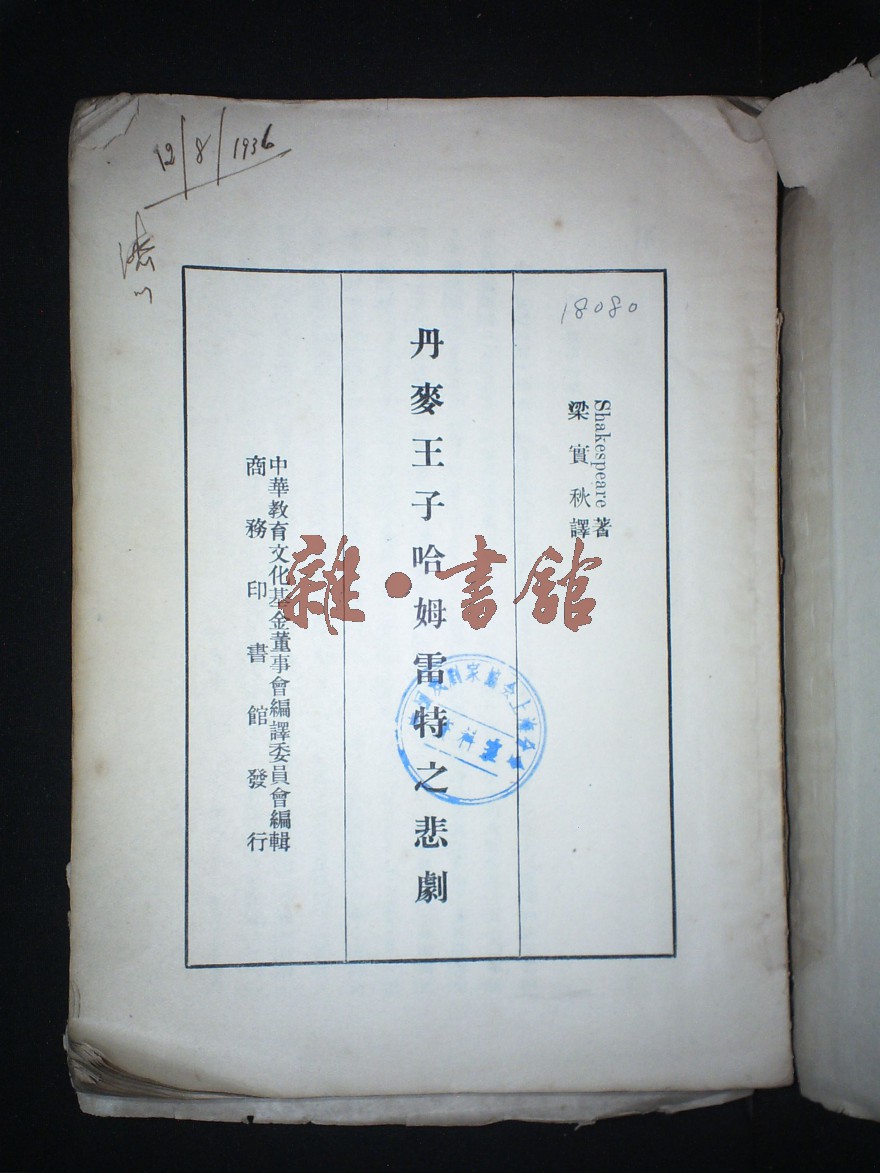 12/8/1936
18080
Shakespeare 著
梁實秋譯
丹麥王子哈姆雷特之悲劇
中華教育文化基金董事會編譯委員會編輯
商務印書館發行
雜·書館